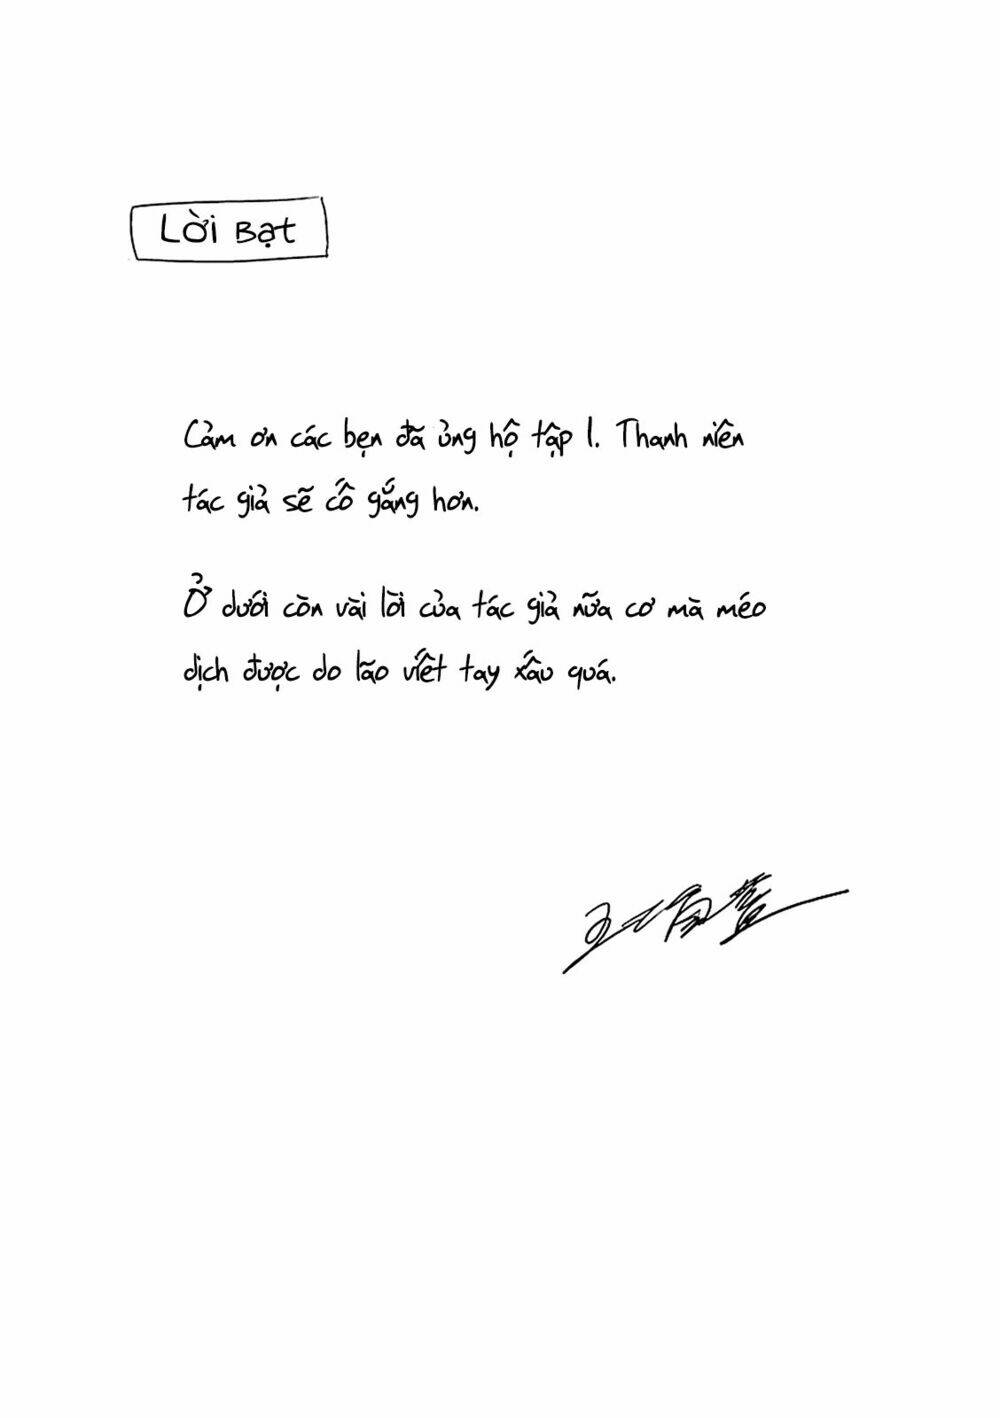 Lời Bạt
Cảm ơn các bạn đã ủng hộ tập 1. Thanh niên
tác giả sẽ cố gắng hơn.
Ở dưới còn vài lời của tác giả nữa cơ mà méo
dịch được do lão viết tay xấu quá.